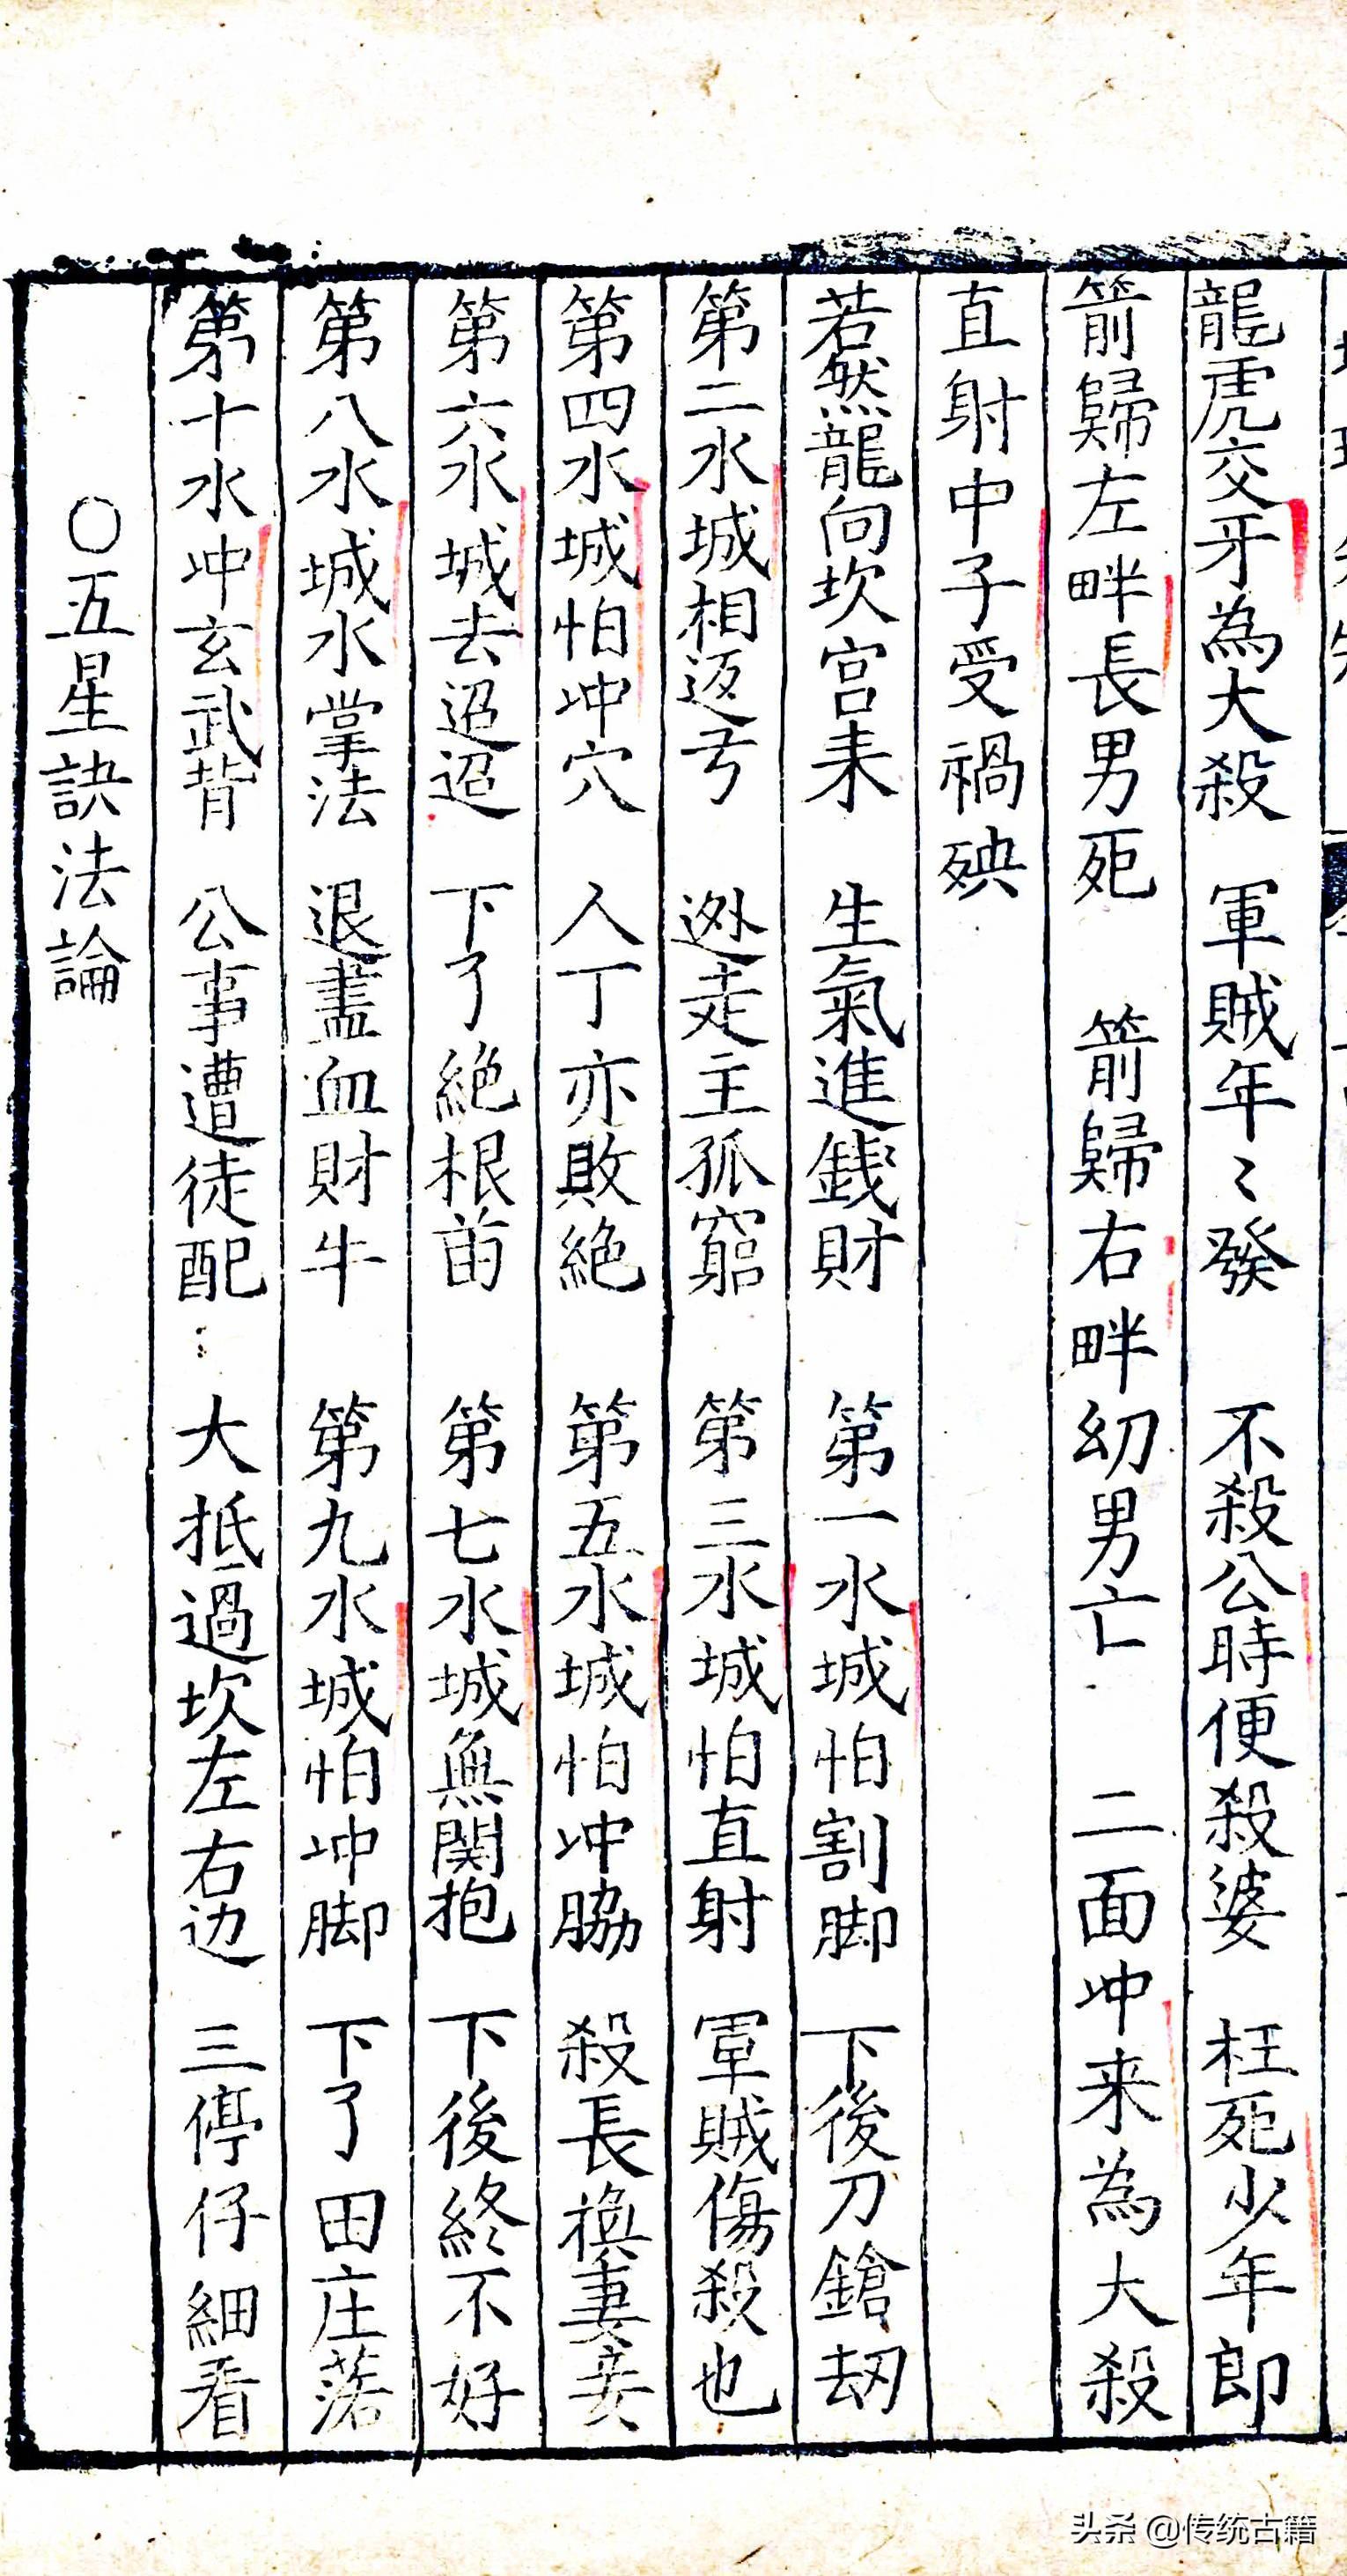 龍虎交牙為大殺　軍賊年〻發　不殺公時便殺婆　枉死少年郎
箭歸左畔長男死　箭歸右畔幼男亡　二面冲来為大殺
直射中子受禍殃
若然龍向坎宫来　生氣進錢財　第一水城怕割脚　下後刀鎗刼
第二水城相返弓　逊走主孤窮　第三水城怕直射　軍賊傷殺也
第四水城怕冲穴　人丁亦敗絶　第五水城怕冲脇　殺長換妻妾
第六水城去迢迢　下了絶根苗　第七水城無関抱　下後終不好
第八水城水掌法　退盡血財牛　第九水城怕冲脚　下了田庄落
第十水冲玄武背　公事遭徒配　大抵過坎左右边　三停仔細看
〇五星訣法論
头条 @传统古籍